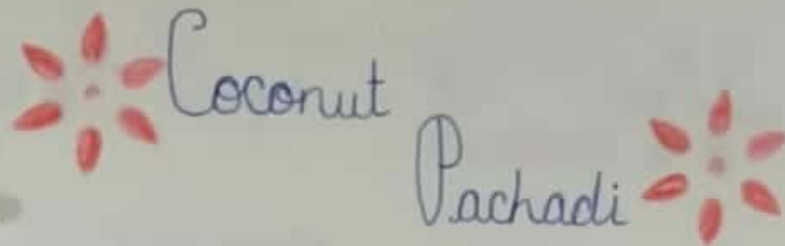 Coconut
Pachadi